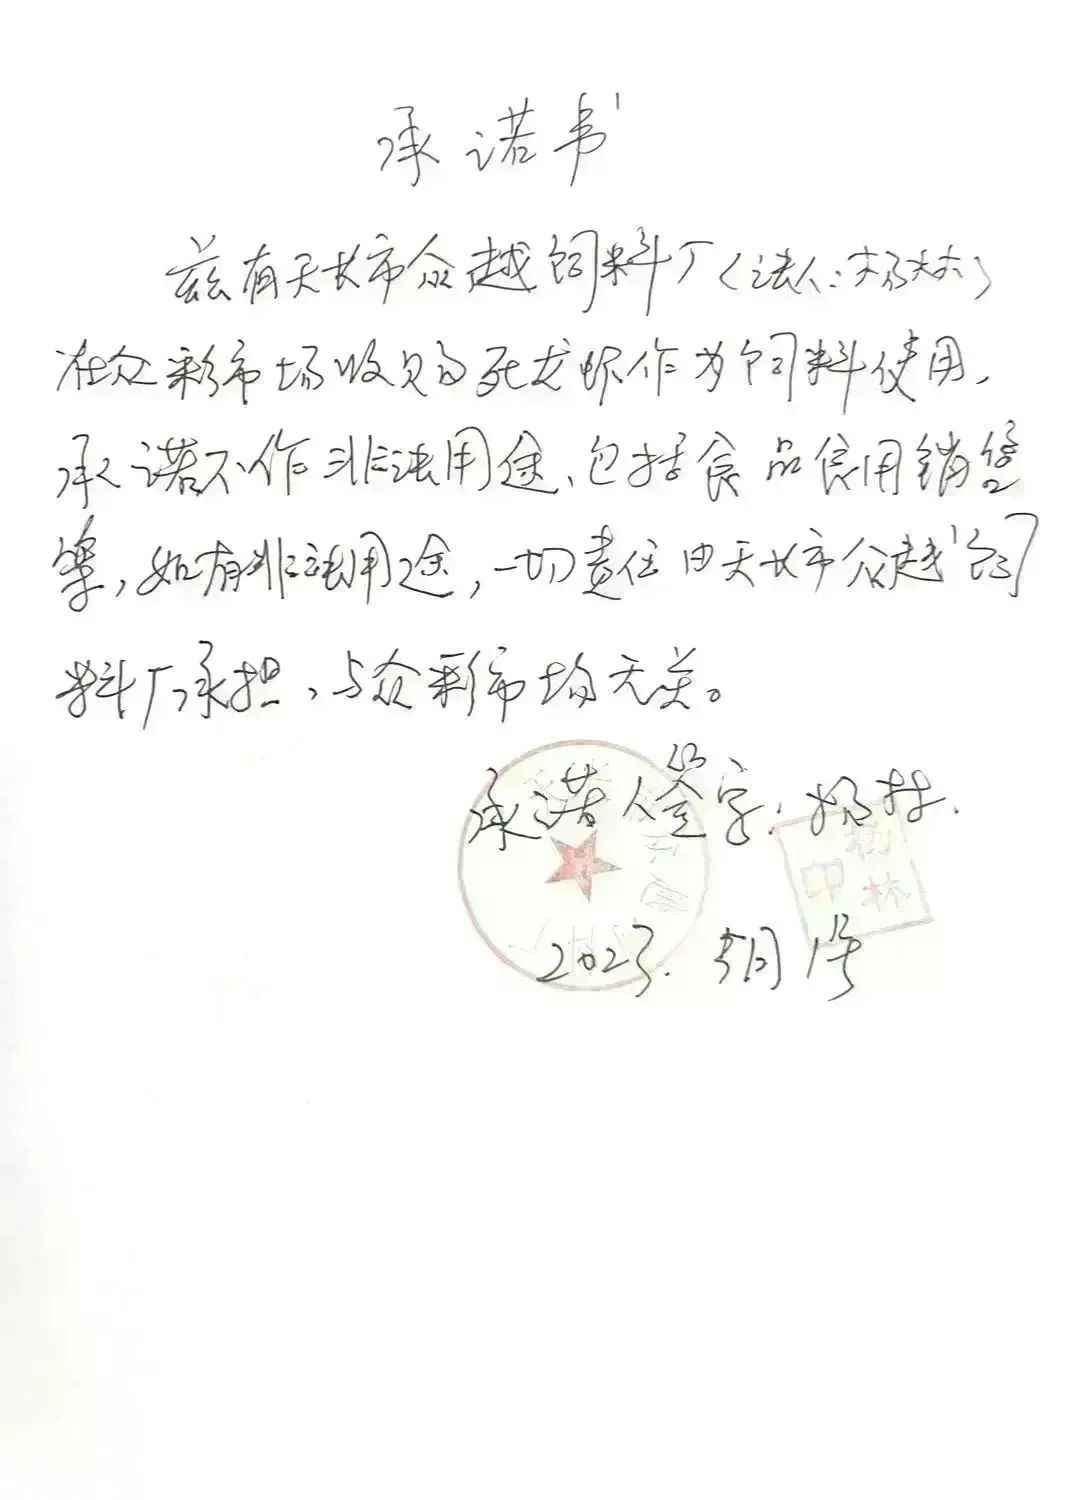 承诺书
兹有天长市众越饲料厂（法人：杨林）
在众彩市场收购的死龙虾作为饲料使用，
承诺不作非法用途、包括食品食用销售
等，如有非法用途，一切责任由天长市众越饲
料厂承担，与众彩市场无关。
承诺人签字：杨林．
2023．5月1号
杨林印